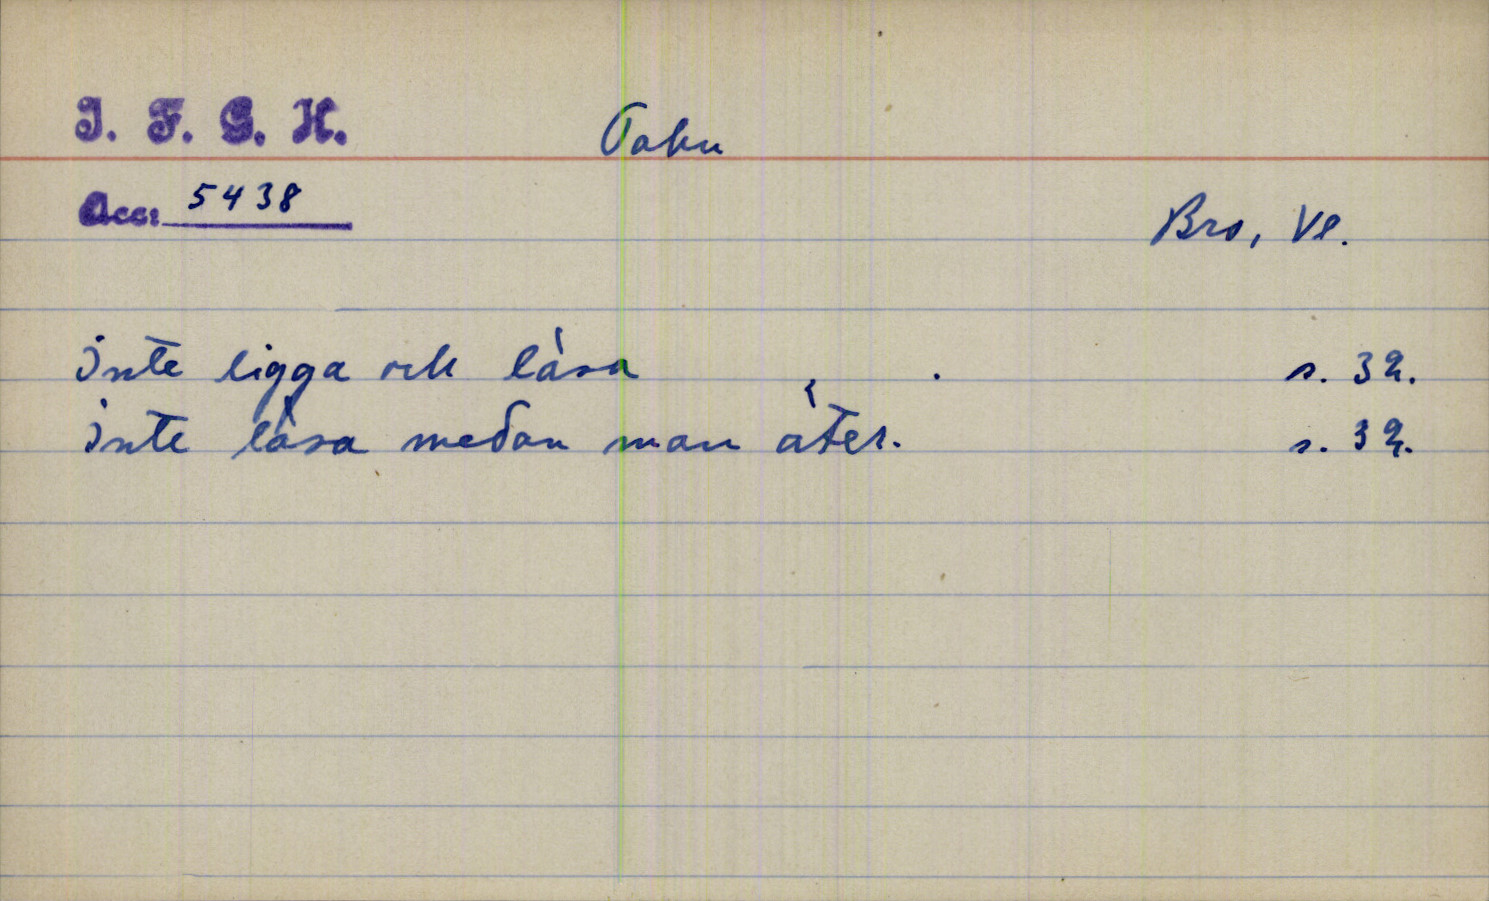 I. F. G. H.
Tabu
Acc: 5438
Bro, Vl.
inte ligga och läsa . s. 32.
inte läsa medan man äter. s. 32.